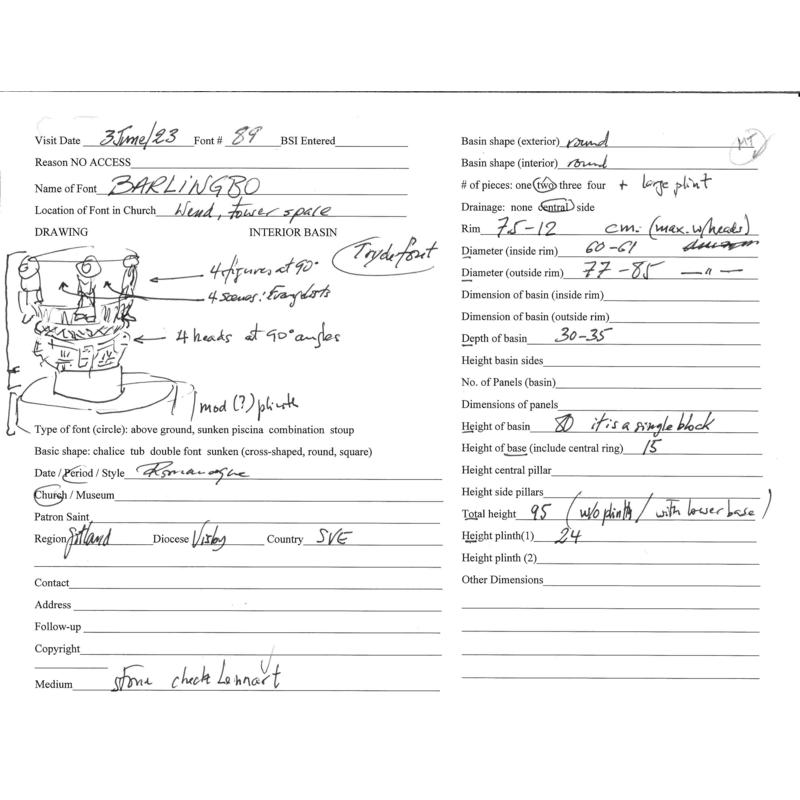 Visit Date 3 June/23 Font # 89 BSI Entered
Reason NO ACCESS
Name of Font BARLINGBO
Location of Font in Church W end, tower space
DRAWING INTERIOR BASIN
Tryde font
4 figures at 90°
4 scenes: Evangelists
4 heads at 90° angles
mod (?) plinth
Type of font (circle): above ground, sunken piscina combination stoup
Basic shape: chalice tub double font sunken (cross-shaped, round, square)
Date / Period / Style Romanesque
Church / Museum
Patron Saint
Region Gotland Diocese Visby Country SVE
Contact
Address
Follow-up
Copyright
Medium stone check Lennart
MT
Basin shape (exterior) round
Basin shape (interior) round
# of pieces: one two three four + large plint
Drainage: none central side
Rim 7.5-12 cm. (max. w/heads)
Diameter (inside rim) 60-61
Diameter (outside rim) 77-85 — " —
Dimension of basin (inside rim)
Dimension of basin (outside rim)
Depth of basin 30-35
Height basin sides
No. of Panels (basin)
Dimensions of panels
Height of basin it is a single block
Height of base (include central ring) 15
Height central pillar
Height side pillars
Total height 95 (w/o plinth / with lower base)
Height plinth(1) 24
Height plinth (2)
Other Dimensions